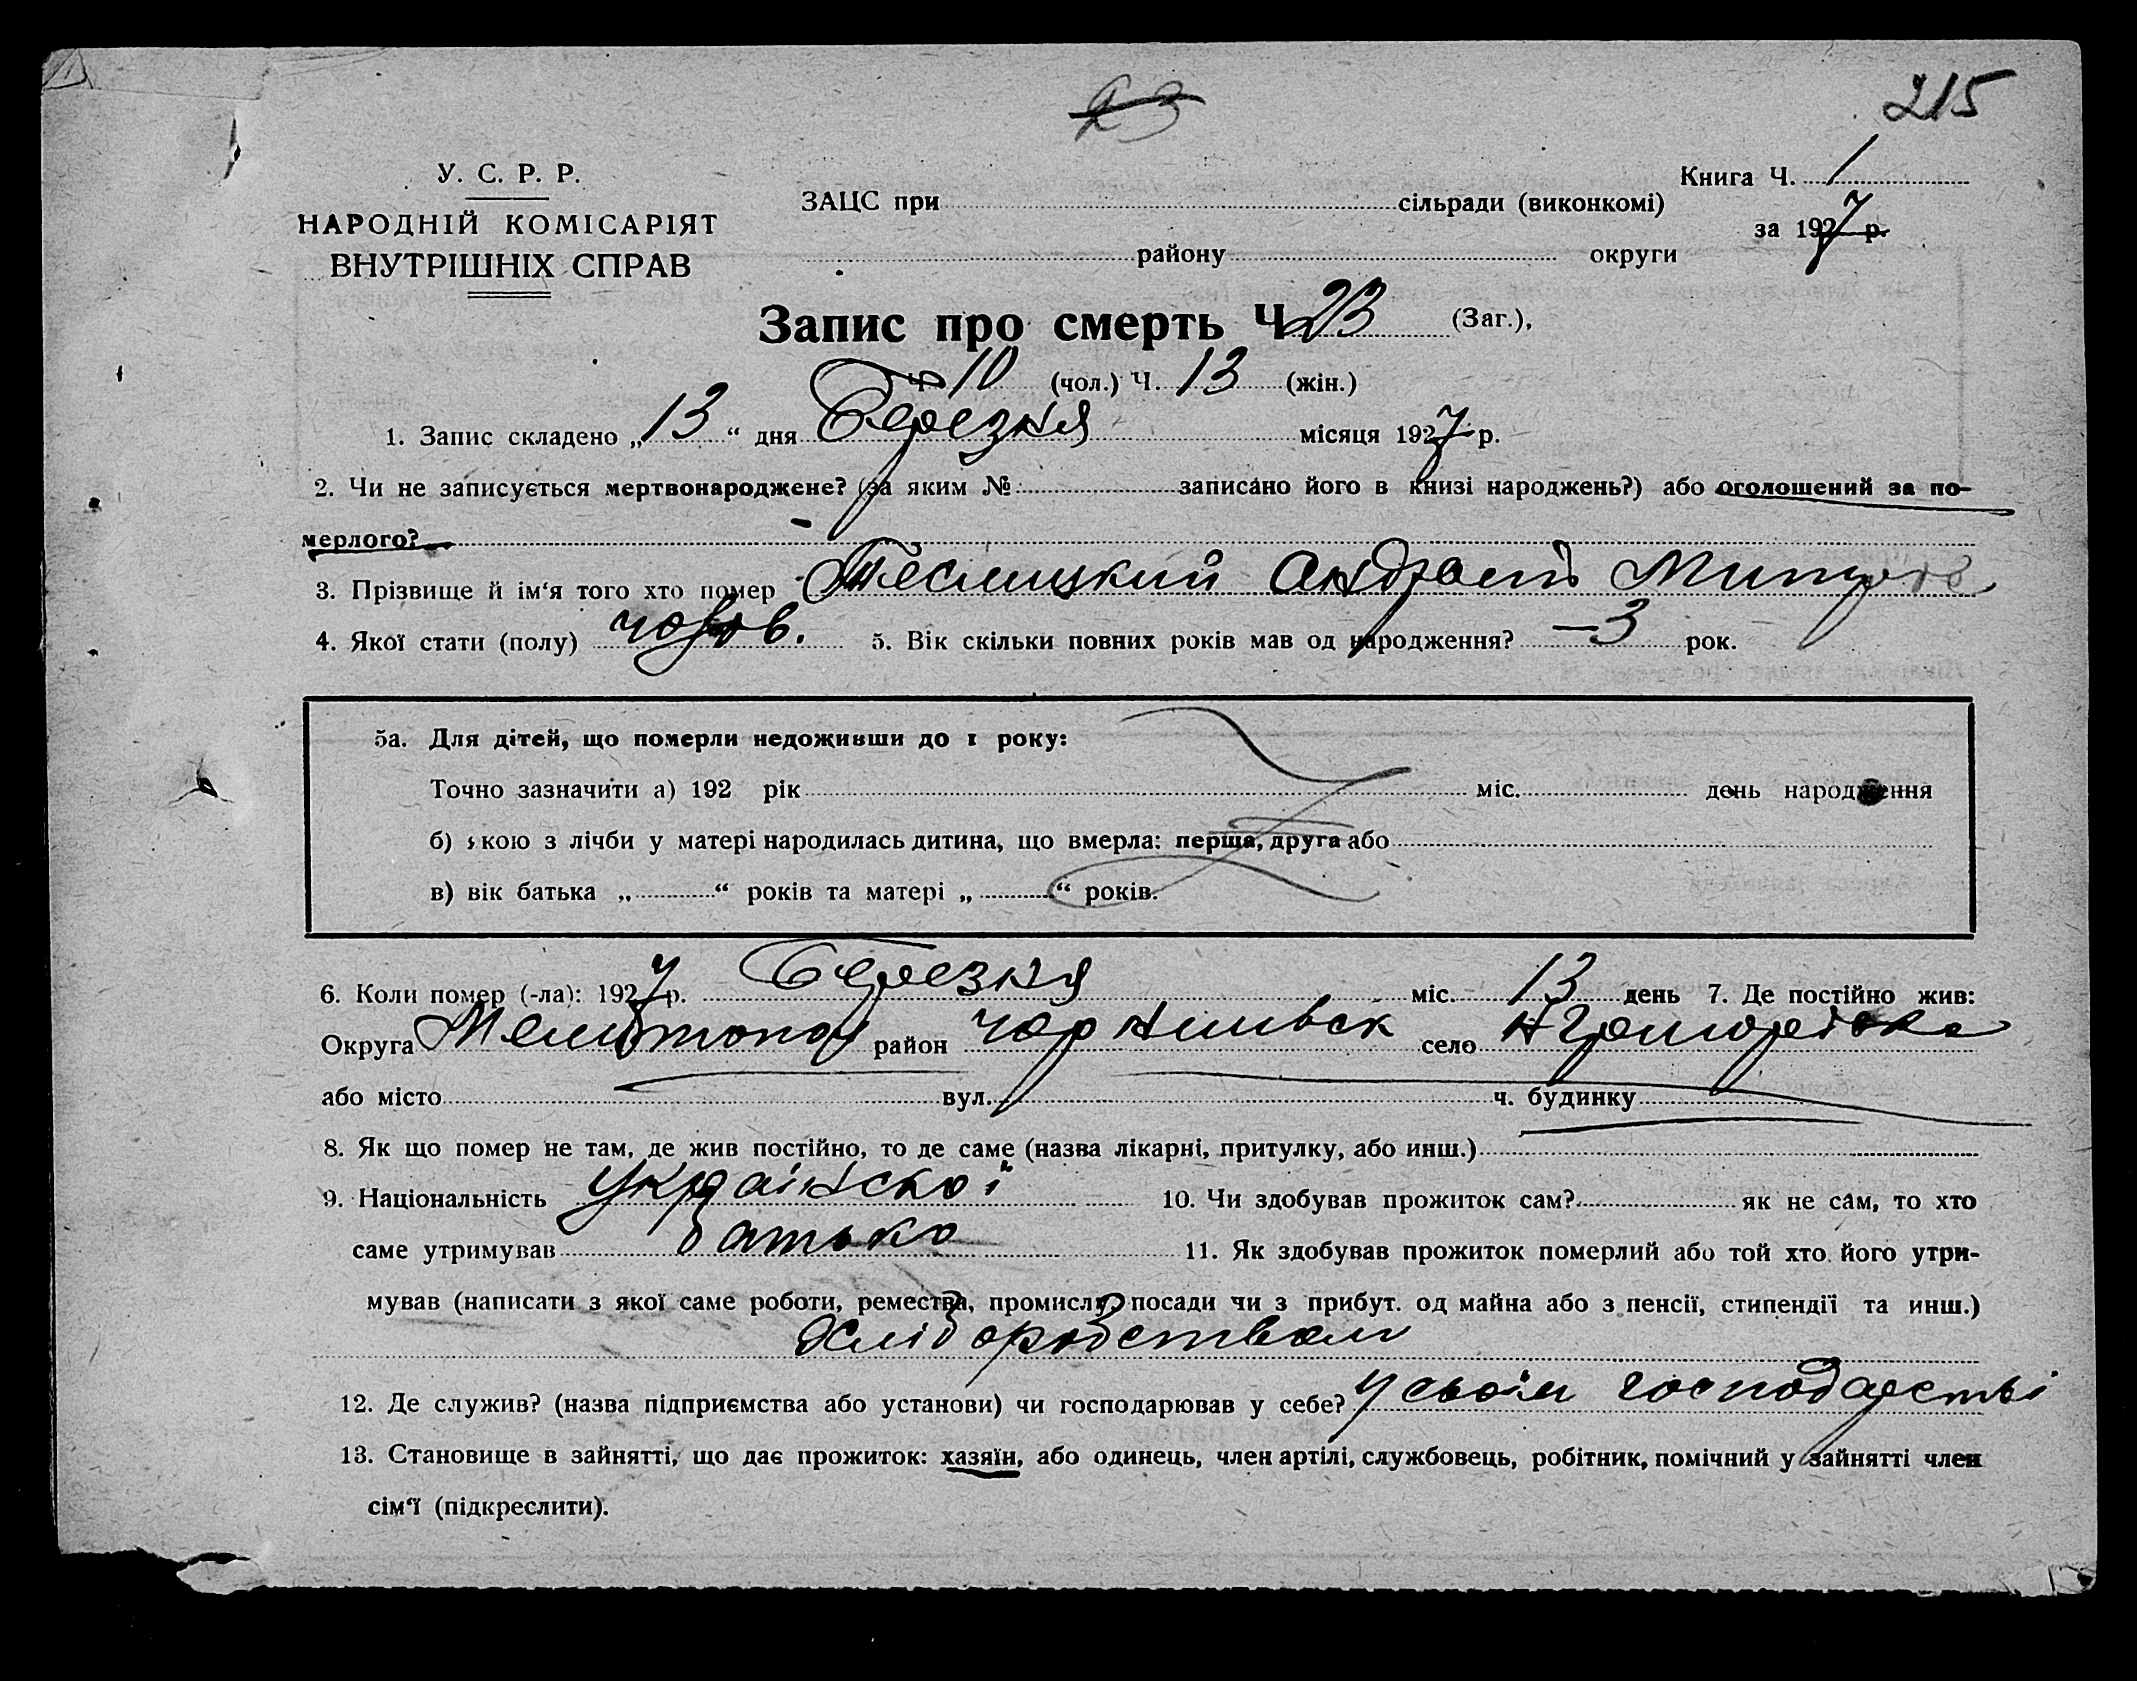 23
215
У. С. Р. Р.
НАРОДНІЙ КОМІСАРІЯТ
ВНУТРІШНІХ СПРАВ
Книга Ч. 1
за 1927 р.
ЗАЦС при сільради (виконкомі)
району округи
Запис про смерть Ч 23 (Заг.),
Ч. 10 (чол.) Ч. 13 (жін.)
1. Запис складено „13“ дня Березня місяця 1927 р.
2. Чи не записується мертвонароджене? (за яким № записано його в книзі народжень?) або оголошений за по-
мерлого?
3. Прізвище й ім‘я того хто помер Теслицкий Андрей
4. Якої стати (полу) 5. Вік скільки повних років мав од народження? —3 рок.
5а. Для дітей, що померли недоживши до 1 року:
Точно зазначити а) 192 рік міс. день народження
б) якою з лічби у матері народилась дитина, що вмерла: перша, друга або
в) вік батька „ “ років та матері „ “ років.
6. Коли помер (-ла): 1927 р. Березня міс. 13 день 7. Де постійно жив:
Округа Мелитопол район Чорнишвск село
або місто вул. ч. будинку
8. Як що помер не там, де жив постійно, то де саме (назва лікарні, притулку, або инш.)
9. Національність Українскої 10. Чи здобував прожиток сам? як не сам, то хто
саме утримував батько 11. Як здобував прожиток померлий або той хто його утри-
мував (написати з якої саме роботи, ремества, промислу, посади чи з прибут. од майна або з пенсії, стипендії та инш.)
Хліборобством
12. Де служив? (назва підприємства або установи) чи господарював у себе? У своїм господарстві
13. Становище в зайнятті, що дає прожиток: хазяїн, або одинець, член артілі, службовець, робітник, помічний у зайнятті член
сім‘ї (підкреслити).